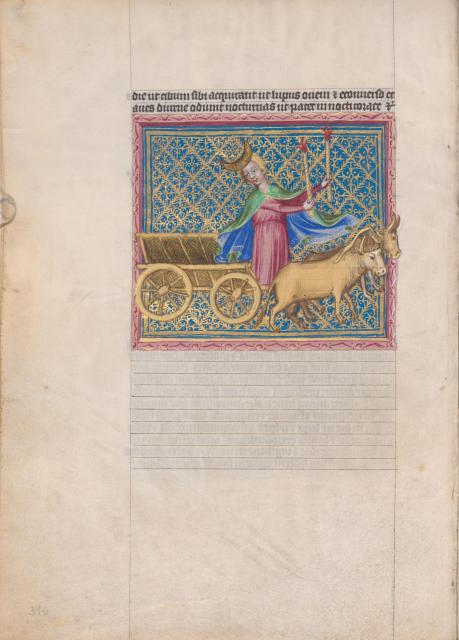 die ut cibum sibi acquirant ut lupus ovem ⁊ econuerso et
aues diurne odiunt nocturnas ut patet in nocticorace ⁊
31v